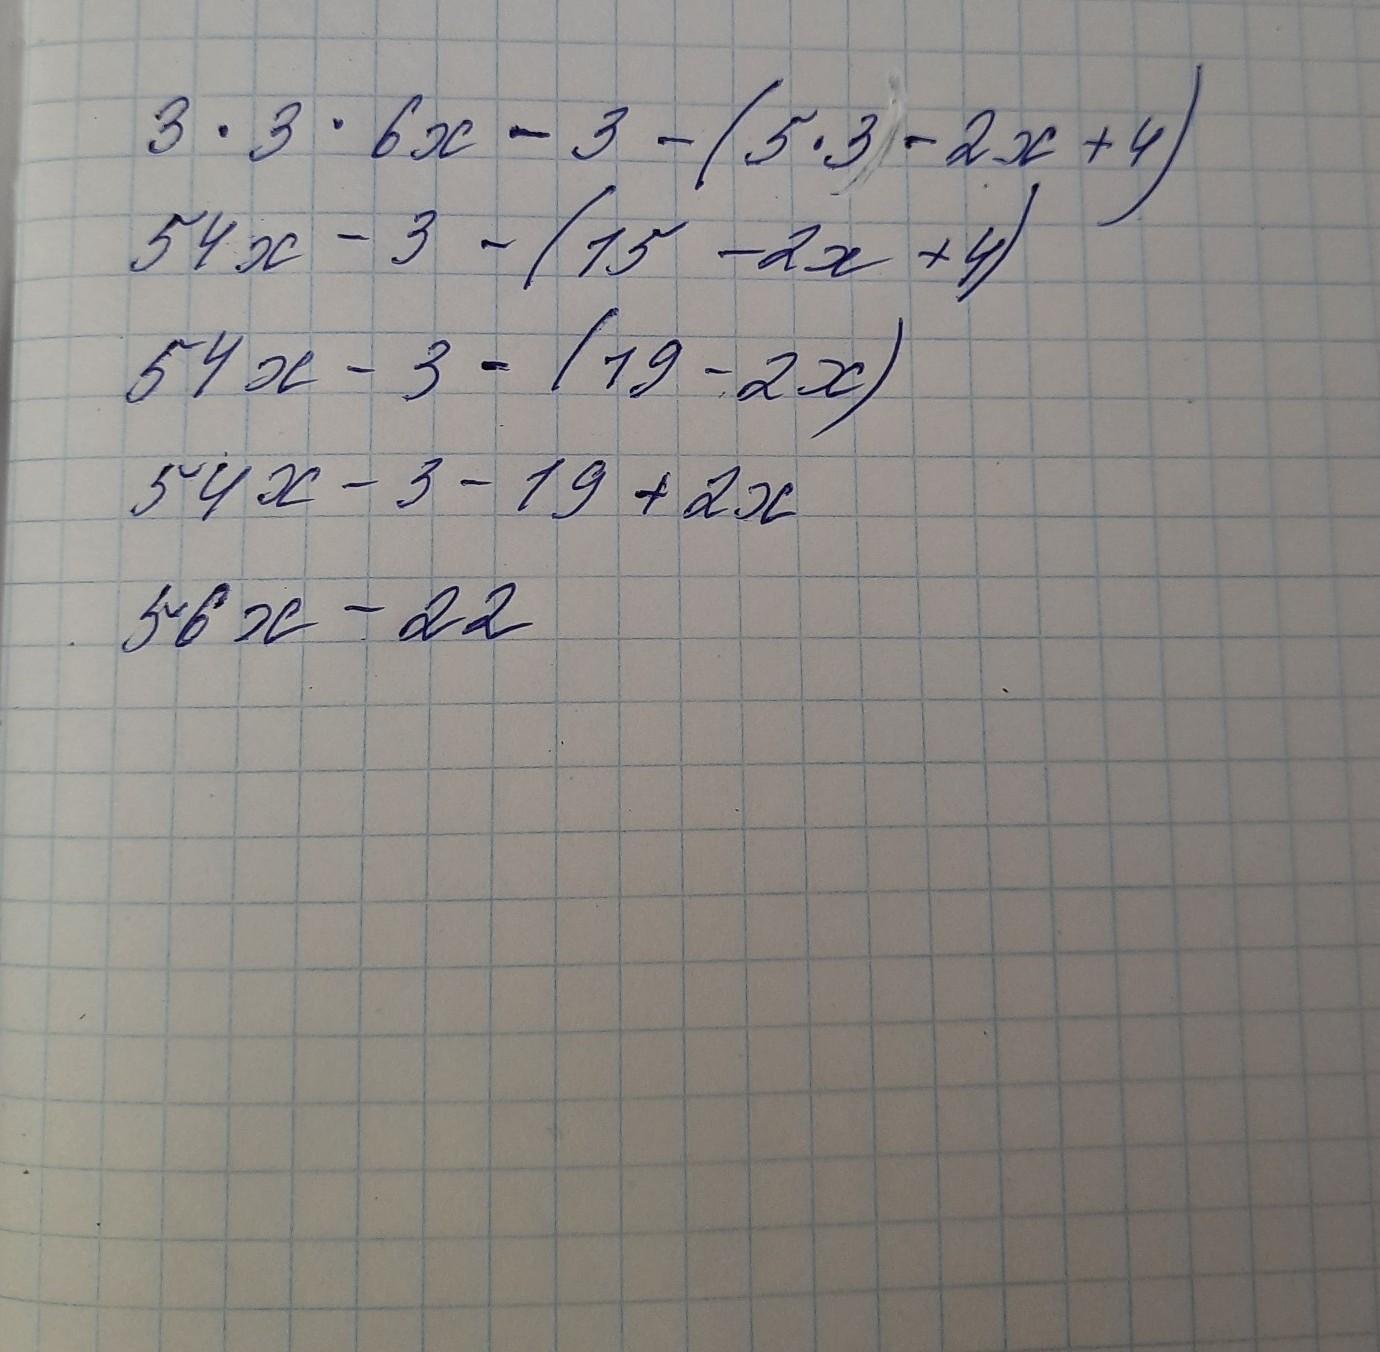 3 · 3 · 6x - 3 - (5·3 - 2x + 4)
54x - 3 - (15 - 2x + 4)
54x - 3 - (19 - 2x)
54x - 3 - 19 + 2x
56x - 22